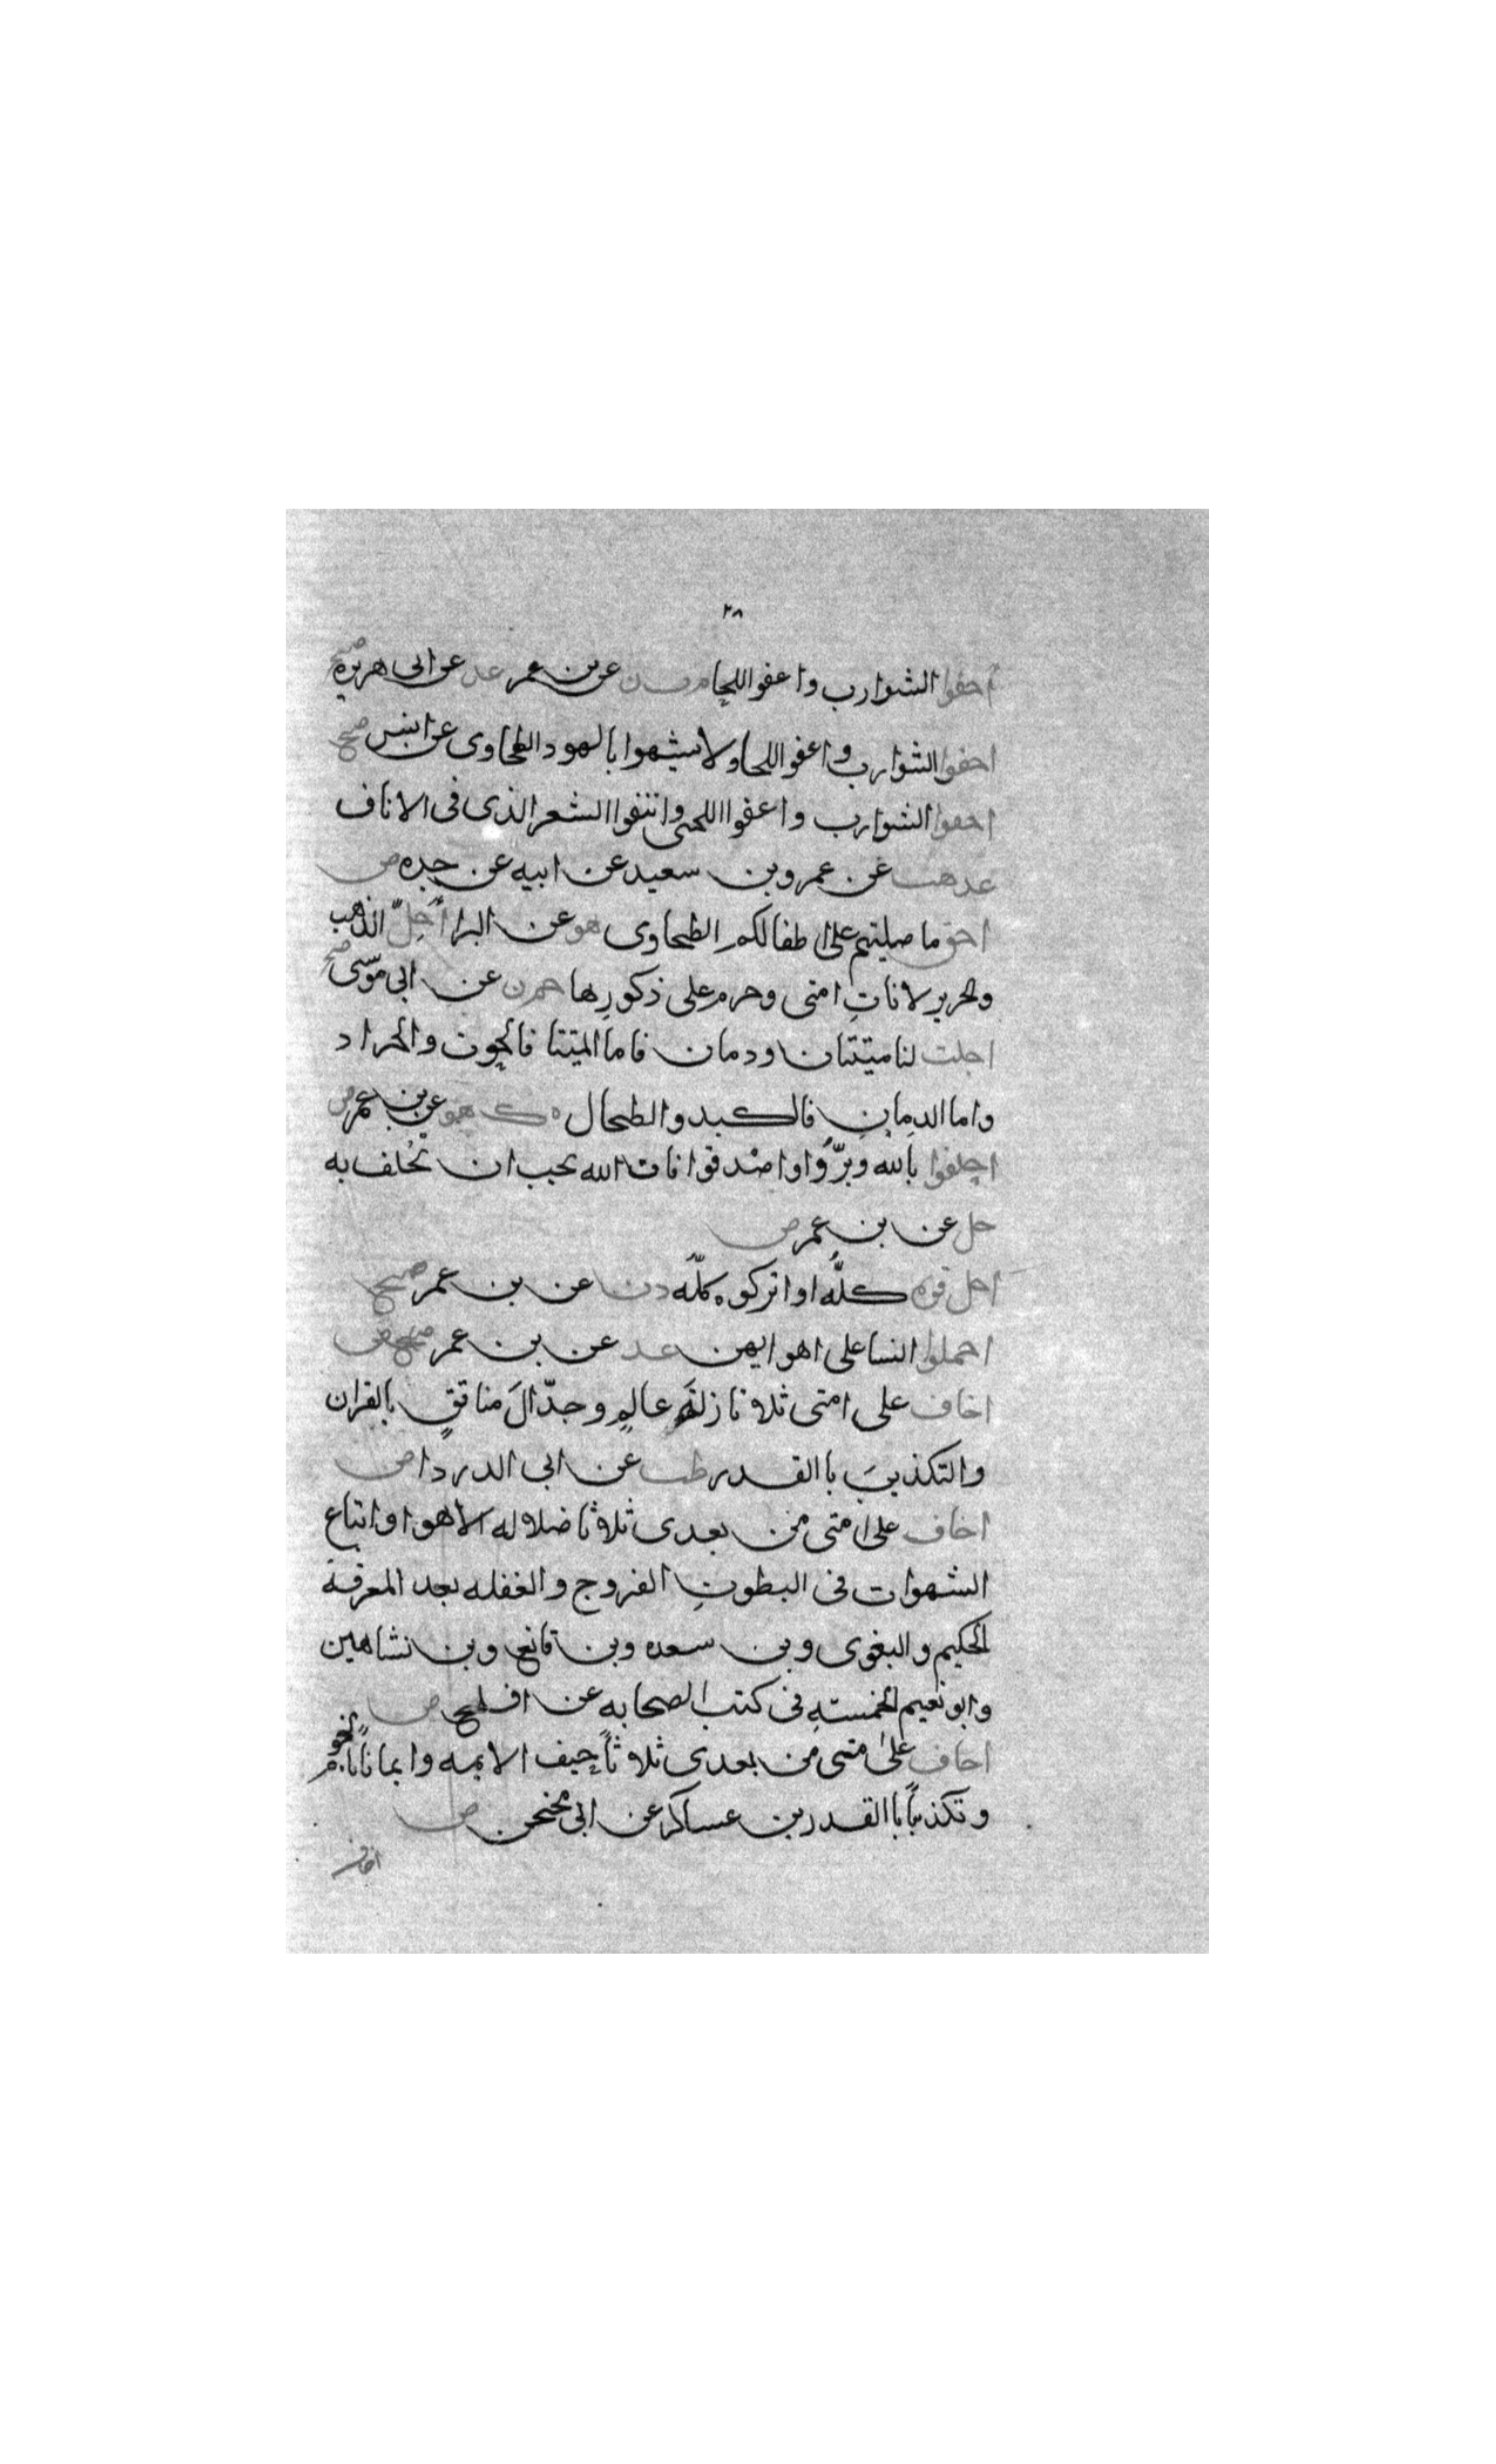 ٢٨
احفوا الشوارب واعفوا اللحا م ت ن عن بن عمر عد عن ابى هريره صح
احفوا الشوارب واعفوا اللحا ولا تشبهوا بالهود الطحاوى عن انس صح
احفوا الشوارب واعفوا اللحى وانتفوا الشعر الذى فى الاناف
عد هب عن عمرو بن سعيد عن ابيه عن جده ض
احق ما صليتم على اطفالكم الطحاوى هق عن البرا أُحِلّ الذهب
والحرير لاناثِ امتى وحرم على ذكورِها حم ن عن ابى موسى صح
احلت لنا ميتتان ودمان فاما الميتتا فالحوت والجراد
واما الدمانِ فالكبد والطحال ه ك هق عن بن عمر ض
احلفوا بالله وبرّوا واصْدقوا فان الله يحب ان يُحلف به
حل عن بن عمر ض
احلقوه كلَّه او اتركوه كلّه د ن عن بن عمر صح
احملوا النسا على اهوايهن عد عن بن عمر ض
اخاف على امتى ثلاثا زلة عالمٍ وجدّالَ منافقٍ بالقران
والتكذيبَ باالقدر طب عن ابى الدردا ض
اخاف على امتى من بعدى ثلاثا ضلاله الاهوا واتباع
الشهوات فى البطونِ الفروج والغفله بعد المعرفة
الحكيم والبغوى وبن سعده وبن قانع وبن نشاهين
وابو نعيم الخمستهِ فى كتب الصحابه عن افلح ض
اخاف على متى من بعدى ثلاثاً حيف الايمه وايماناً بالنجوم
وتكذيباً باالقدر بن عساكر عن ابى محجن ض
اخاف